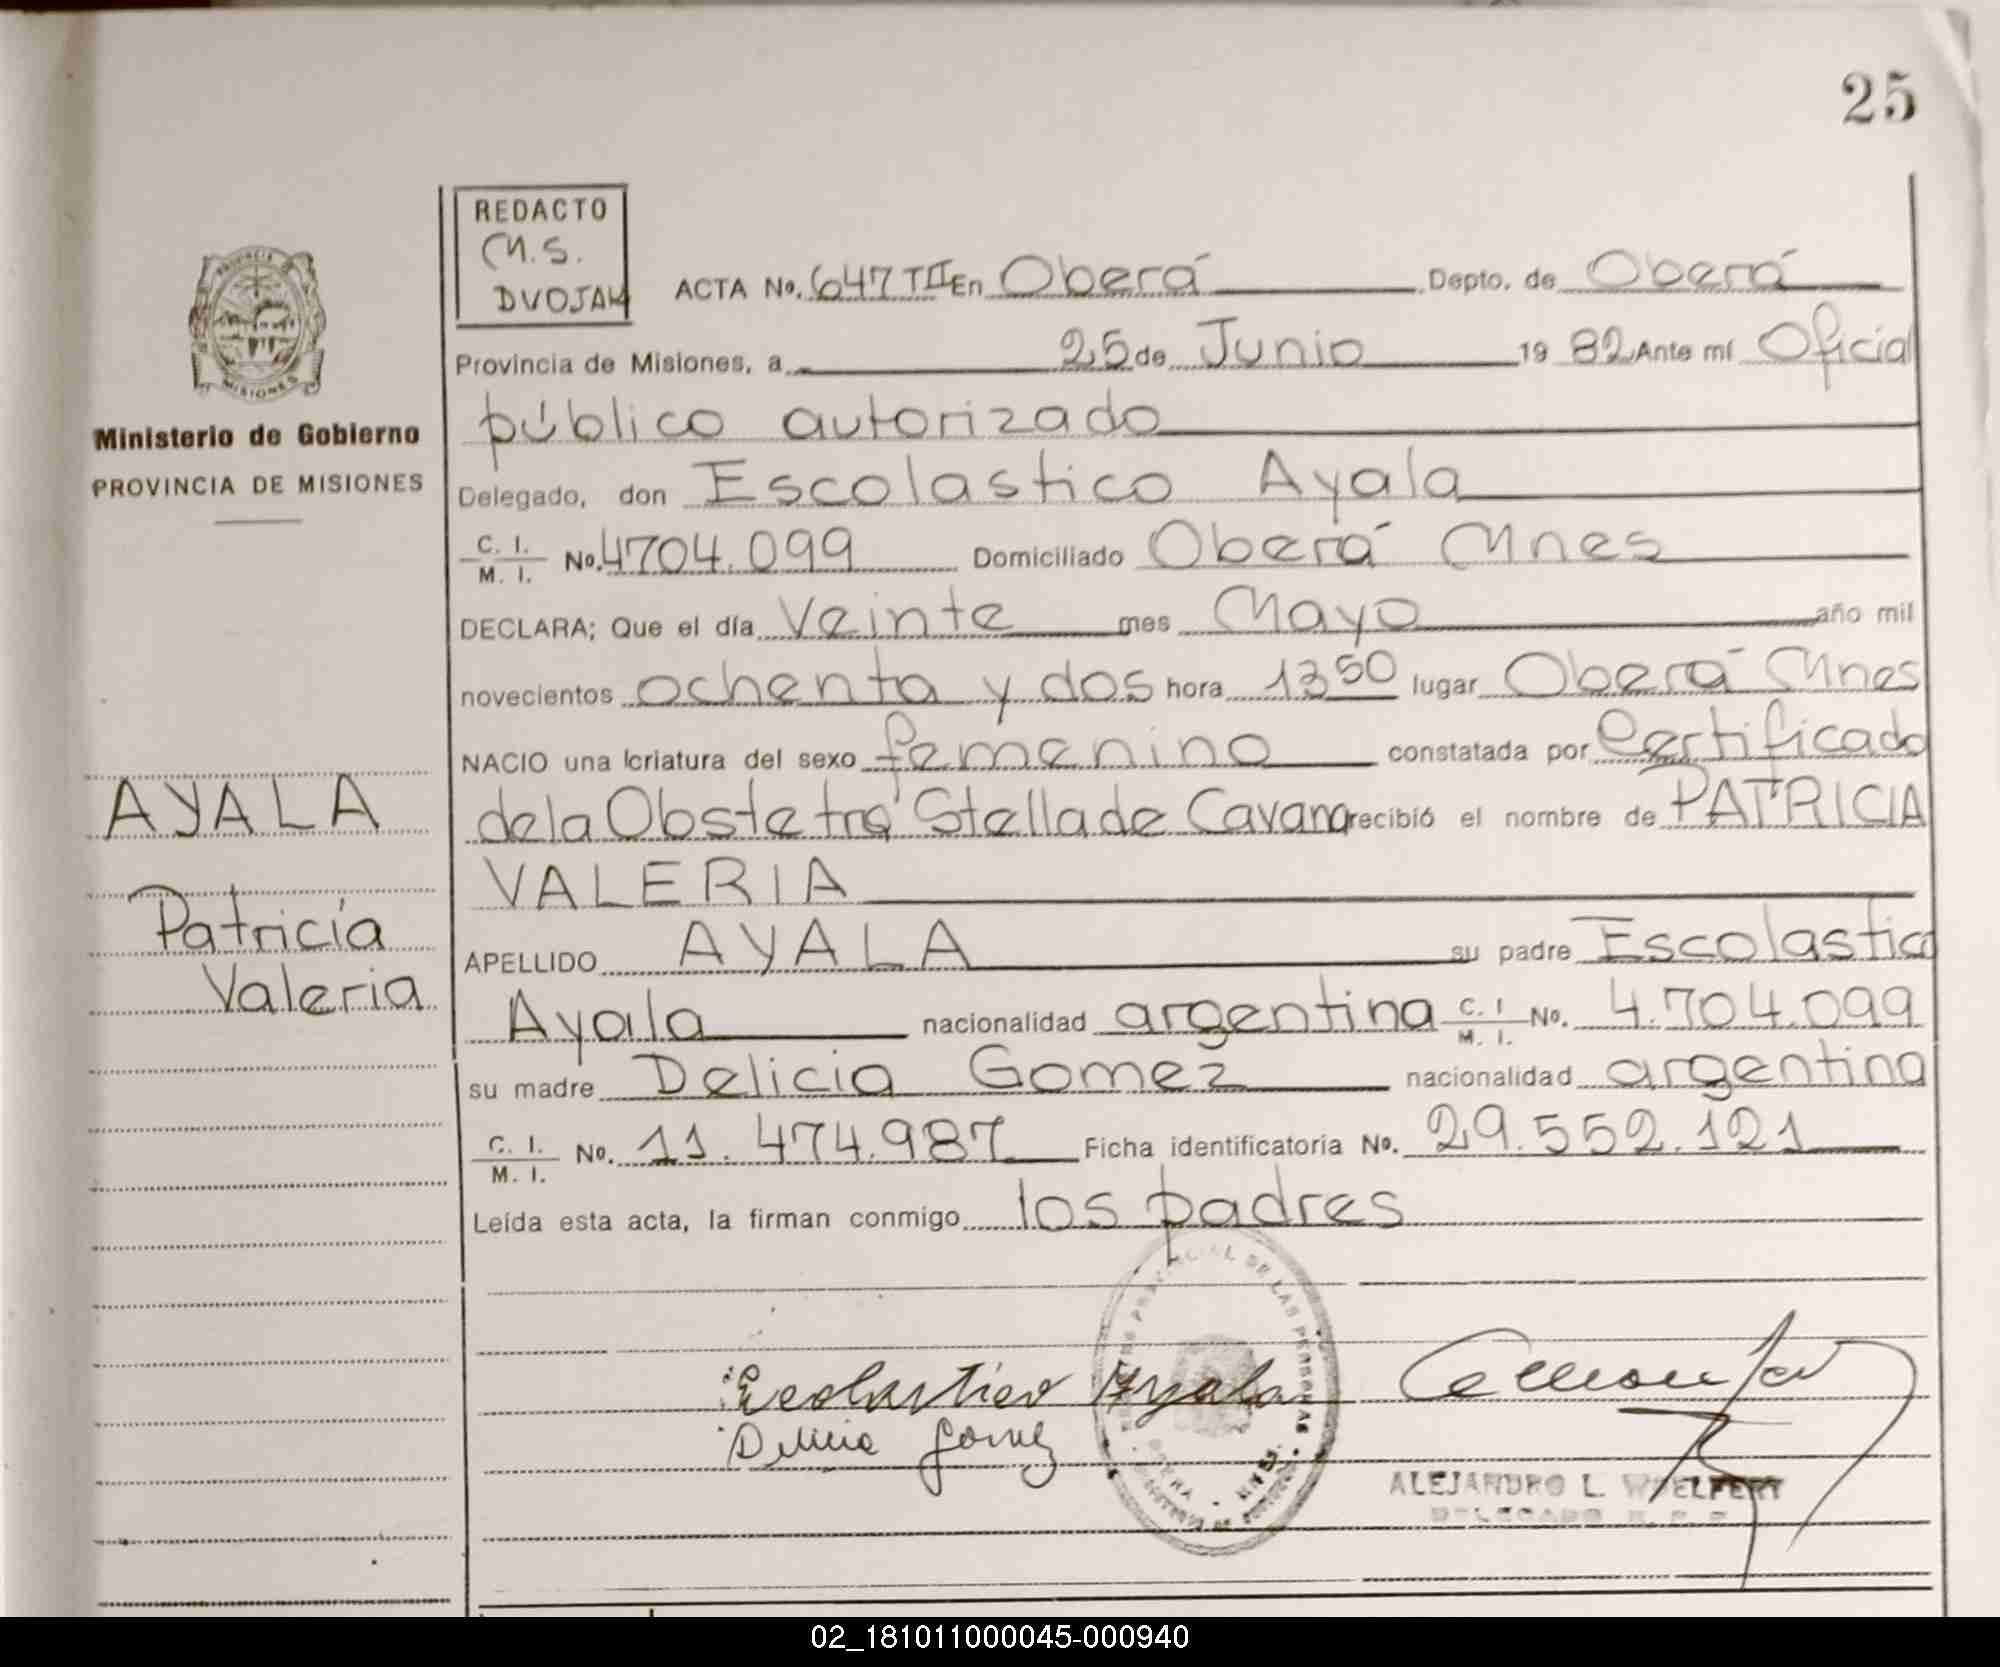 25
REDACTO
M.S.
DVOJAK
PROVINCIA DE
MISIONES
Ministerio de Gobierno
PROVINCIA DE MISIONES
AYALA
Patricia
Valeria
ACTA No. 647 TII En Oberá Depto. de Oberá
Provincia de Misiones, a 25 de Junio 19 82 Ante mí Oficial
público autorizado
Delegado, don Escolastico Ayala
C. I. / M. I. No. 4704.099 Domiciliado Oberá Mnes
DECLARA; Que el día Veinte mes Mayo año mil
novecientos ochenta y dos hora 13 50 lugar Oberá Mnes
NACIO una criatura del sexo femenino constatada por Certificado
de la Obstetra Stella de Cavana recibió el nombre de PATRICIA
VALERIA
APELLIDO AYALA su padre Escolastico
Ayala nacionalidad argentina C. I / M. I. No. 4.704.099
su madre Delicia Gomez nacionalidad argentina
C. I. / M. I. No. 11.474.987 Ficha identificatoria No. 29.552.121
Leída esta acta, la firman conmigo los padres
Escolastico Ayala
Delicia Gomez
DE LAS PERSONAS
ALEJANDRO L. WOELFERT
DELEGADO
02_181011000045-000940